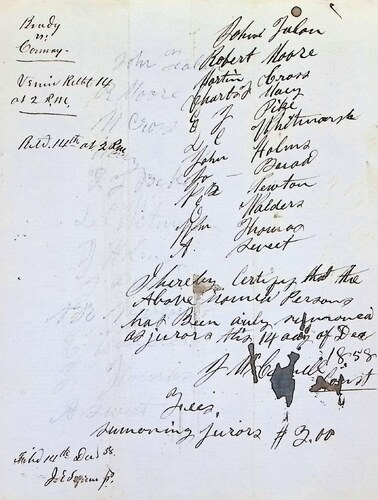 Brady
vs.
Conway
Venire Retbl 14
at 2 P.M.
Retd. 14th at 2 P.m.
John Talon
Robert Moore
Martin Cross
Charls Macy
E J Pike
L C Whitmarsh
John Holms
Jo Beraad
W B Newton
Walders
Wm Thomas
A Sweet
I hereby Certify that the
Above Named Persons
has Been duly summoned
as jurors this 14 day of Dec
1858
Const
Fees,
summoning jurors $3.00
Filed 14th Dec 58.